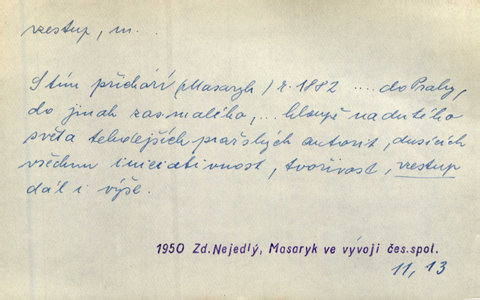 vzestup, m.
S tím přichází (Masaryk) r. 1882 .... do Prahy,
do jinak zasmálého, ... hloupě nadutého
světa tehdejších pražských autorit, dusících
všechnu iniciativnost, tvořivost, vzestup
dál i výše.
1950 Zd. Nejedlý, Masaryk ve vývoji čes. spol.
11, 13